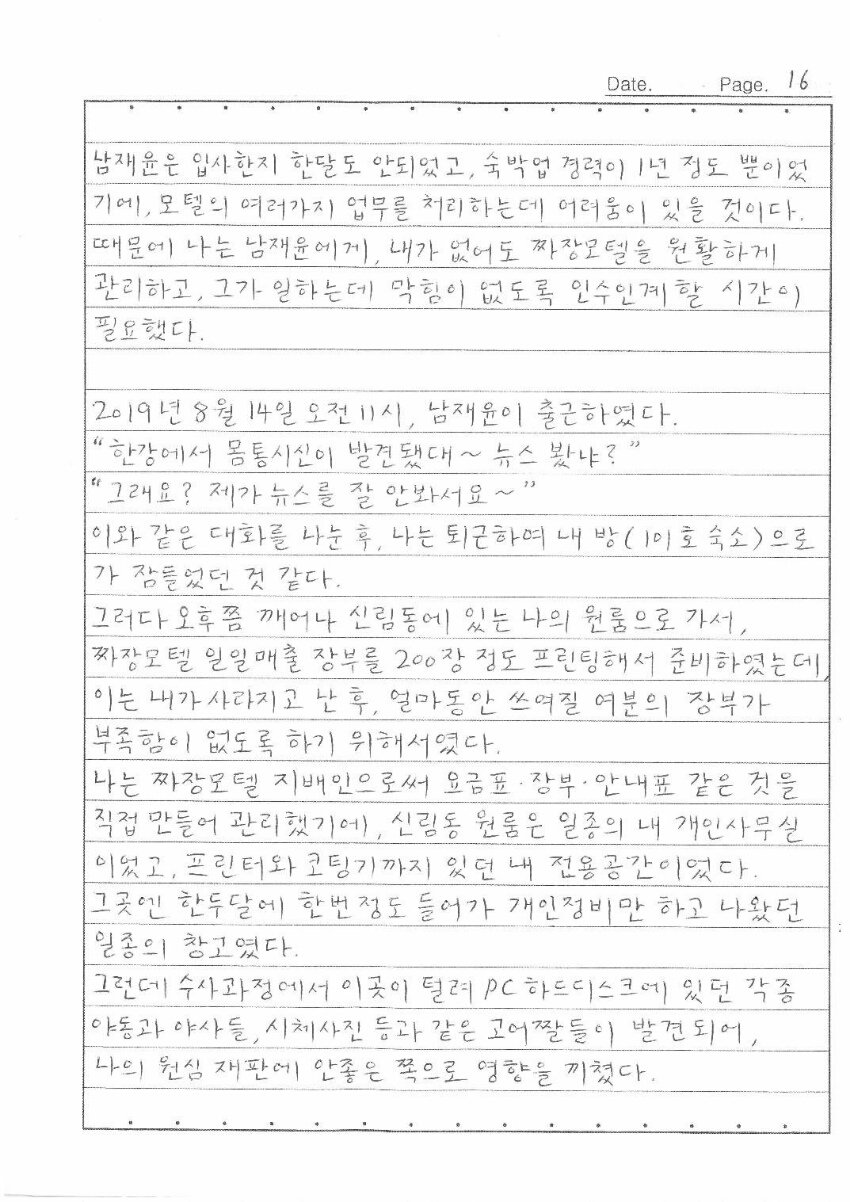 Date. Page. 16
남재윤은 입사한지 한달도 안되었고, 숙박업 경력이 1년 정도 뿐이었
기에, 모텔의 여러가지 업무를 처리하는데 어려움이 있을 것이다.
때문에 나는 남재윤에게, 내가 없어도 짜장모텔을 원활하게
관리하고, 그가 일하는데 막힘이 없도록 인수인계할 시간이
필요했다.
2019년 8월 14일 오전 11시, 남재윤이 출근하였다.
“한강에서 몸통시신이 발견됐대~ 뉴스 봤냐?”
“그래요? 제가 뉴스를 잘 안봐서요~”
이와 같은 대화를 나눈 후, 나는 퇴근하여 내 방(101호 숙소)으로
가 잠들었던 것 같다.
그러다 오후쯤 깨어나 신림동에 있는 나의 원룸으로 가서,
짜장모텔 일일매출 장부를 200장 정도 프린팅해서 준비하였는데,
이는 내가 사라지고 난 후, 얼마동안 쓰여질 여분의 장부가
부족함이 없도록 하기 위해서였다.
나는 짜장모텔 지배인으로써 요금표·장부·안내표 같은 것을
직접 만들어 관리했기에, 신림동 원룸은 일종의 내 개인사무실
이었고, 프린터와 코팅기까지 있던 내 전용공간이었다.
그곳엔 한두달에 한번정도 들어가 개인정비만 하고 나왔던
일종의 창고였다.
그런데 수사과정에서 이곳이 털려 PC 하드디스크에 있던 각종
야동과 야사들, 시체사진 등과 같은 고어짤들이 발견되어,
나의 원심 재판에 안좋은 쪽으로 영향을 끼쳤다.